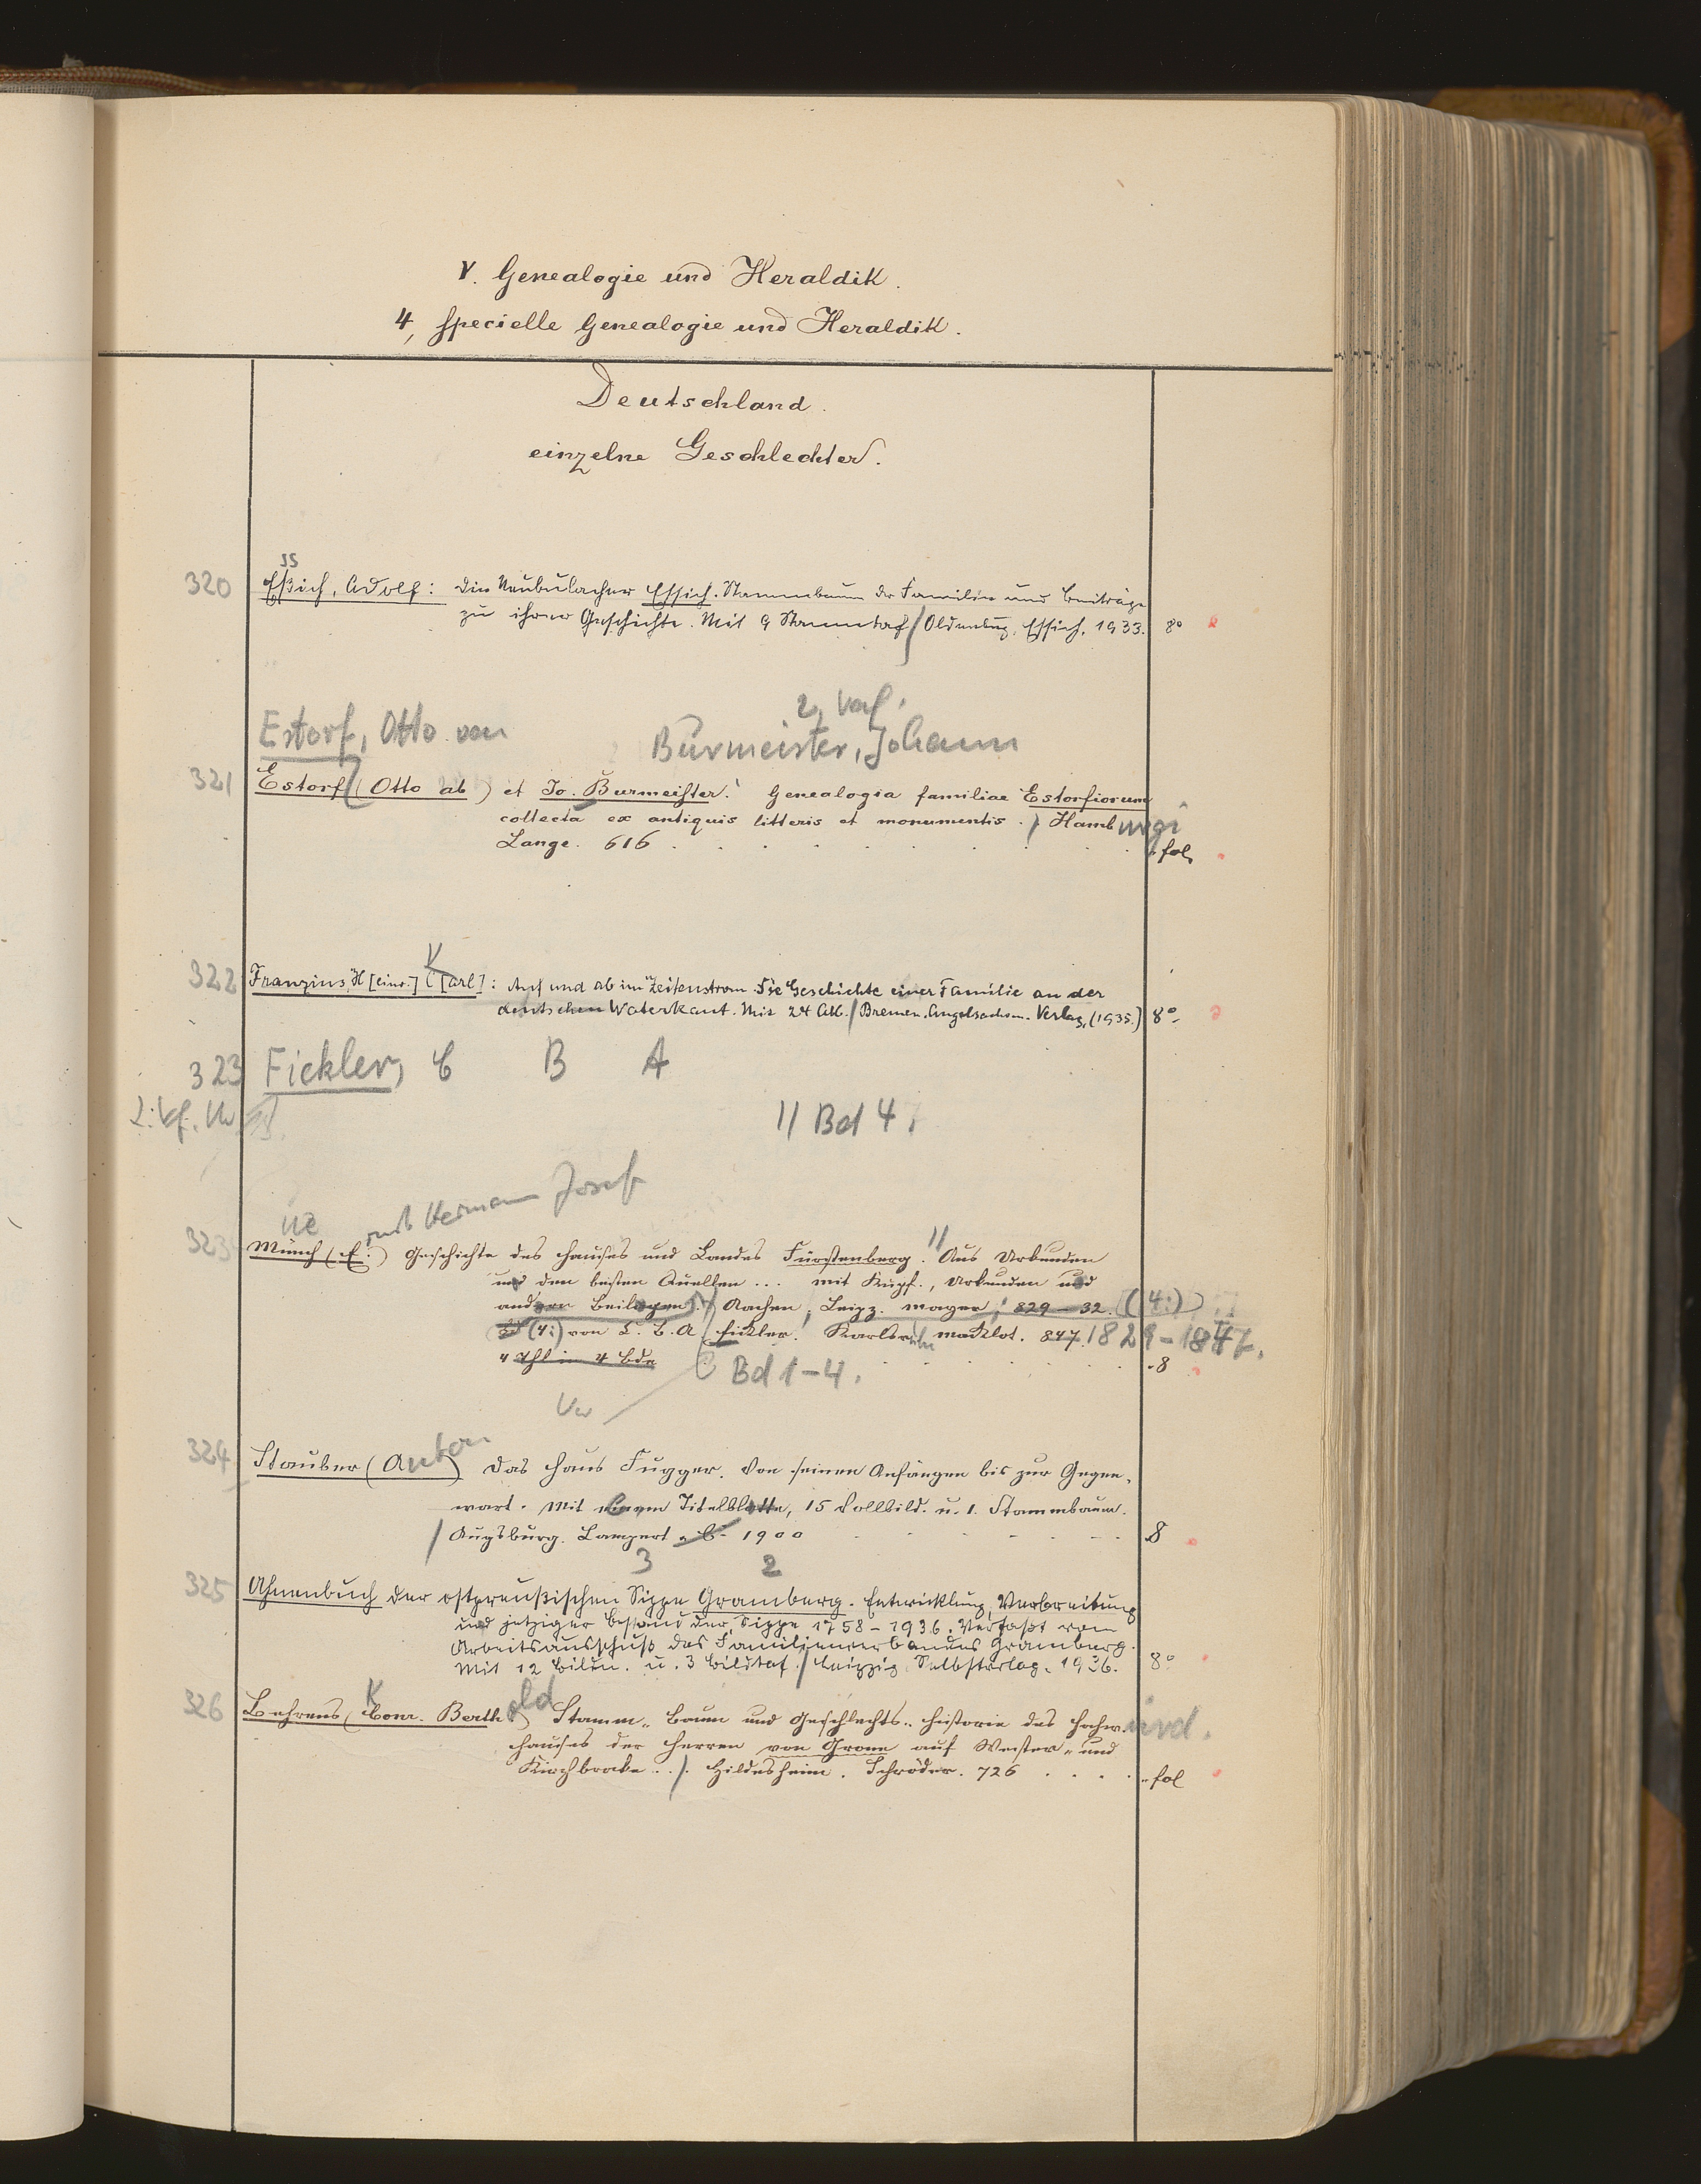 V. Genealogie und Heraldik.
4, specielle Genealogie und Heraldik.
Deutschland.
einzelne Geschlechter.
ss
320 Eßich, Adolf: Die Neubulacher Essich. Stammbaum der Familie und Beiträge
zu ihrer Geschichte. Mit 9 Stammtaf / Oldenburg, Essich, 1933. 8°
2. Verf.
Estorf, Otto von Burmeister, Johann
321 Estorf (Otto ab) et Jo. Burmeister. Genealogia familiae Estorfiorum
collecta ex antiquis litteris et monumentis. / Hamburgi
Lange. 616 . . . . . . . . fol.
K
322 Franzius, H[einr.] C[arl]: Auf und ab im Zeitenstrom. Die Geschichte einer Familie an der
deutschen Waterkant. Mit 24 Abb. / Bremen, Angelsachsen-Verlag, (1935.) 8°
323 Fickler, C B A
2. Vf.
// Bd 4.
Hermann Josef
323 Münch (E.) Geschichte des Hauses und Landes Fürstenberg. // Aus Urkunden
und den besten Quellen ... mit Kupf., Urkunden und
anderen Beilagen. / Aachen, Leipz. Mayer, 829-32. (4:)
Bd (4:) von C. B. A. Fickler. Karlsruhe Macklot. 847. 1829-1847.
4 Thl in 4 Bde . . . . . . 8
Bd 1-4.
324 Stauber (Anton) Das Haus Fugger. Von seinen Anfängen bis zur Gegen-
wart. Mit einem Titelblatte, 15 Vollbild. u. 1. Stammbaum.
/ Augsburg. Lampart 1900 - - - - - 8
3 2
325 Ahnenbuch der ostpreußischen Sippe Gramberg. Entwicklung, Verbreitung
und jetziger Bestand der Sippe 1758-1936. Verfaßt vom
Arbeitsausschuß des Familienverbandes Gramberg.
Mit 12 Bildn. u. 3 Bildtaf. / Leipzig, Selbstverlag, 1936. 8°
K
326 Behrens (Conr. Berthold) Stamm-Baum und Geschlechts-Historie des Hochw.
Hauses der Herren von Grone auf Wester- und
Kirchbrake ... /. Hildesheim. Schröder. 726 . . . . fol